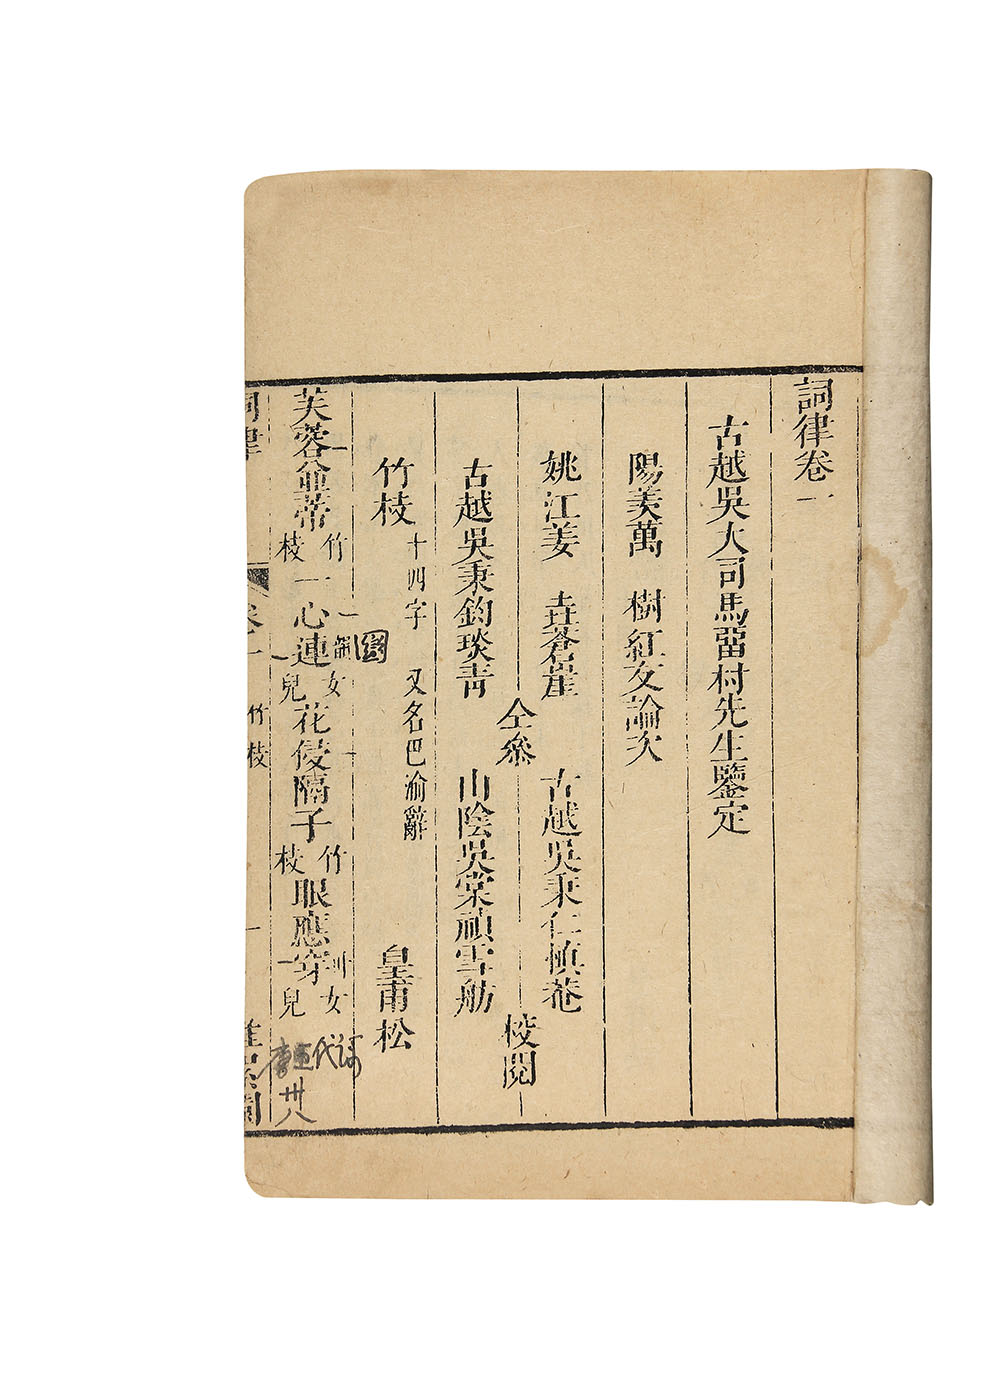 詞律卷一
古越吳大司馬畱村先生鑒定
陽羨萬　樹紅友論次
姚江姜　垚蒼崖
古越吳秉鈞琰青
仝叅
古越吳秉仁慎菴
山陰吳棠禎雪舫
校閱
竹枝 十四字　又名巴渝辭　皇甫松
芙蓉並蔕竹枝一心連韻女兒花侵隔子竹枝眼應穿叶女兒
卅八
詞律
卷一　竹枝
一
堆絮園